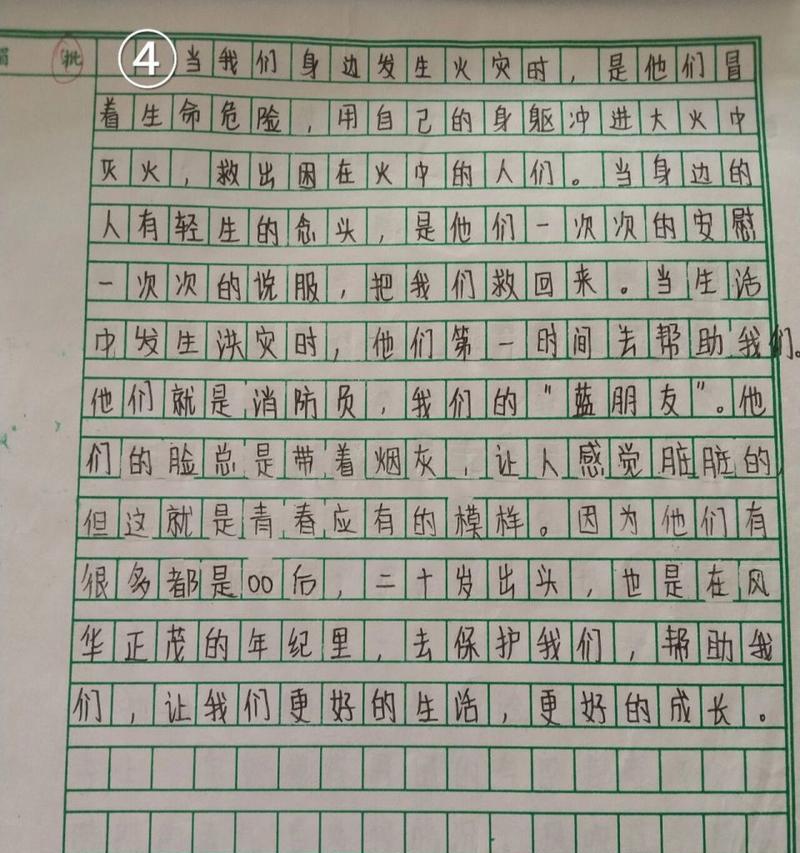 批 ④当我们身边发生火灾时，是他们冒
着生命危险，用自己的身躯冲进大火中
灭火，救出困在火中的人们。当身边的
人有轻生的念头，是他们一次次的安慰
一次次的说服，把我们救回来。当生活
中发生洪灾时，他们第一时间去帮助我们。
他们就是消防员，我们的“蓝朋友”。他
们的脸总是带着烟灰，让人感觉脏脏的，
但这就是青春应有的模样。因为他们有
很多都是00后，二十发出头，也是在风
华正茂的年纪里，去保护我们，帮助我
们，让我们更好的生活，更好的成长。